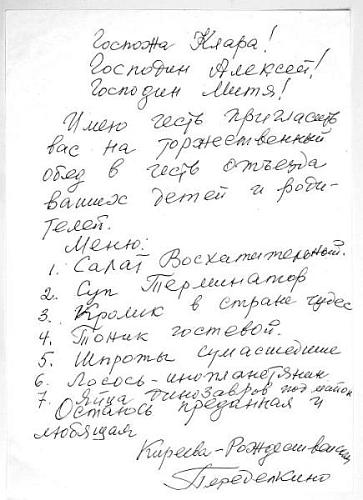 Госпожа Клара!
Господин Алексей!
Господин Митя!
Имею честь пригласить
вас на торжественный
обед в честь отъезда
ваших детей и роди-
телей.
Меню:
1. Салат Восхитительной.
2. Суп Терминатор
3. Кролик в стране чудес
4. Тоник гостевой.
5. Шпроты сумасшедшие
6. Лосось-инопланетянин
7. Яйца динозавров под майон
Остаюсь преданная и
любящая
Киреева-Рождественская
Переделкино